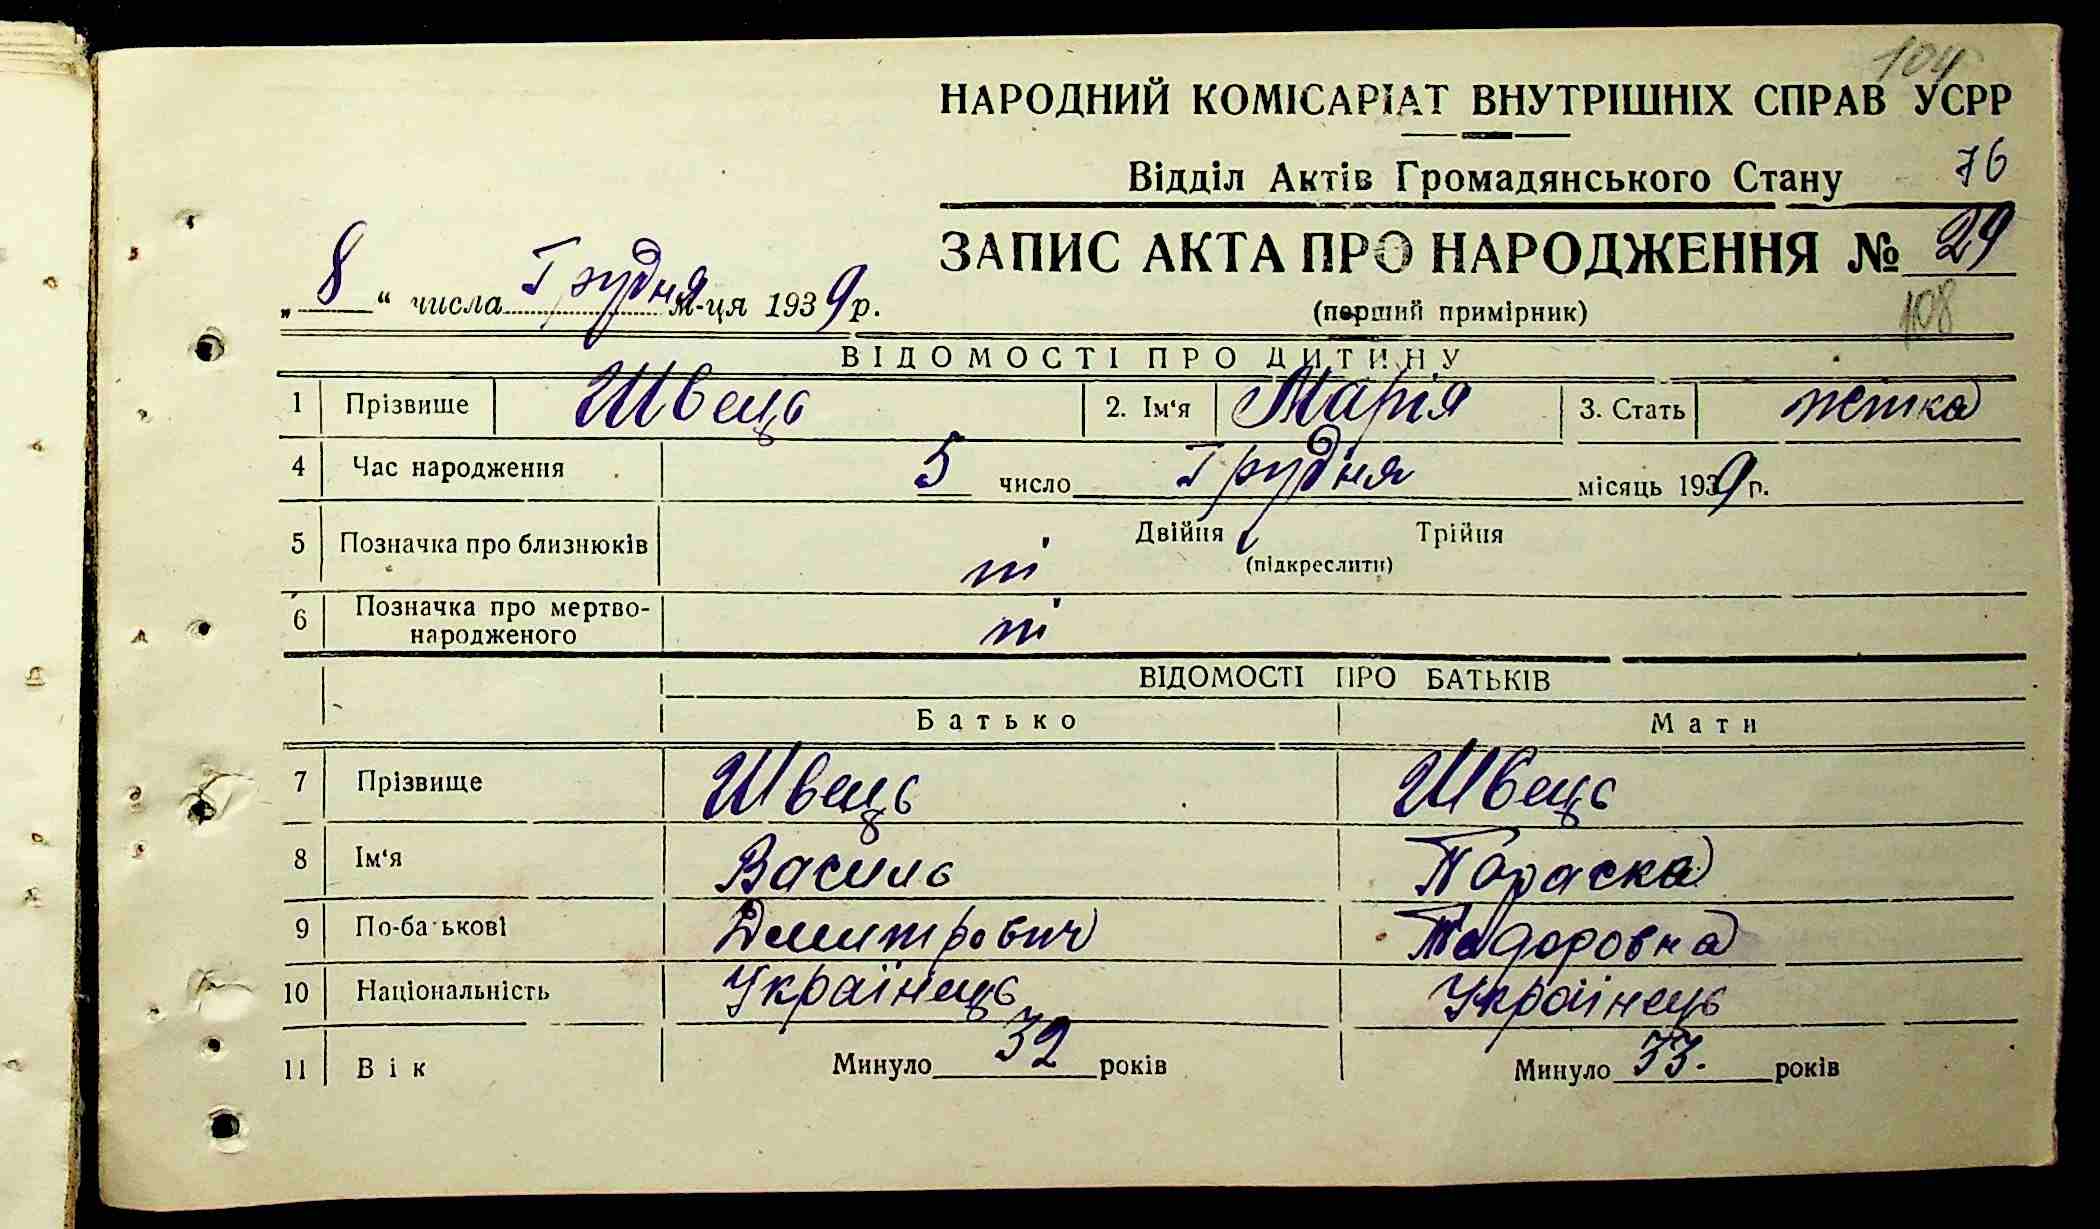 104
НАРОДНИЙ КОМІСАРІАТ ВНУТРІШНІХ СПРАВ УСРР
Відділ Актів Громадянського Стану 76
ЗАПИС АКТА ПРО НАРОДЖЕННЯ № 29
„8“ числа Грудня м-ця 1939 р.
(перший примірник) 108
ВІДОМОСТІ ПРО ДИТИНУ
1 Прізвище Швець 2. Ім‘я Марія 3. Стать жетка
4 Час народження 5 число Грудня місяць 1939 р.
5 Позначка про близнюків ні Двійня Трійня
(підкреслити)
6 Позначка про мертво-
народженого ні
ВІДОМОСТІ ПРО БАТЬКІВ
Батько Мати
7 Прізвище Швець Швець
8 Ім‘я Василь Параска
9 По-батькові Дмитрович Тодоровна
10 Національність Українець Українець
11 Вік Минуло 32 років Минуло 33. років